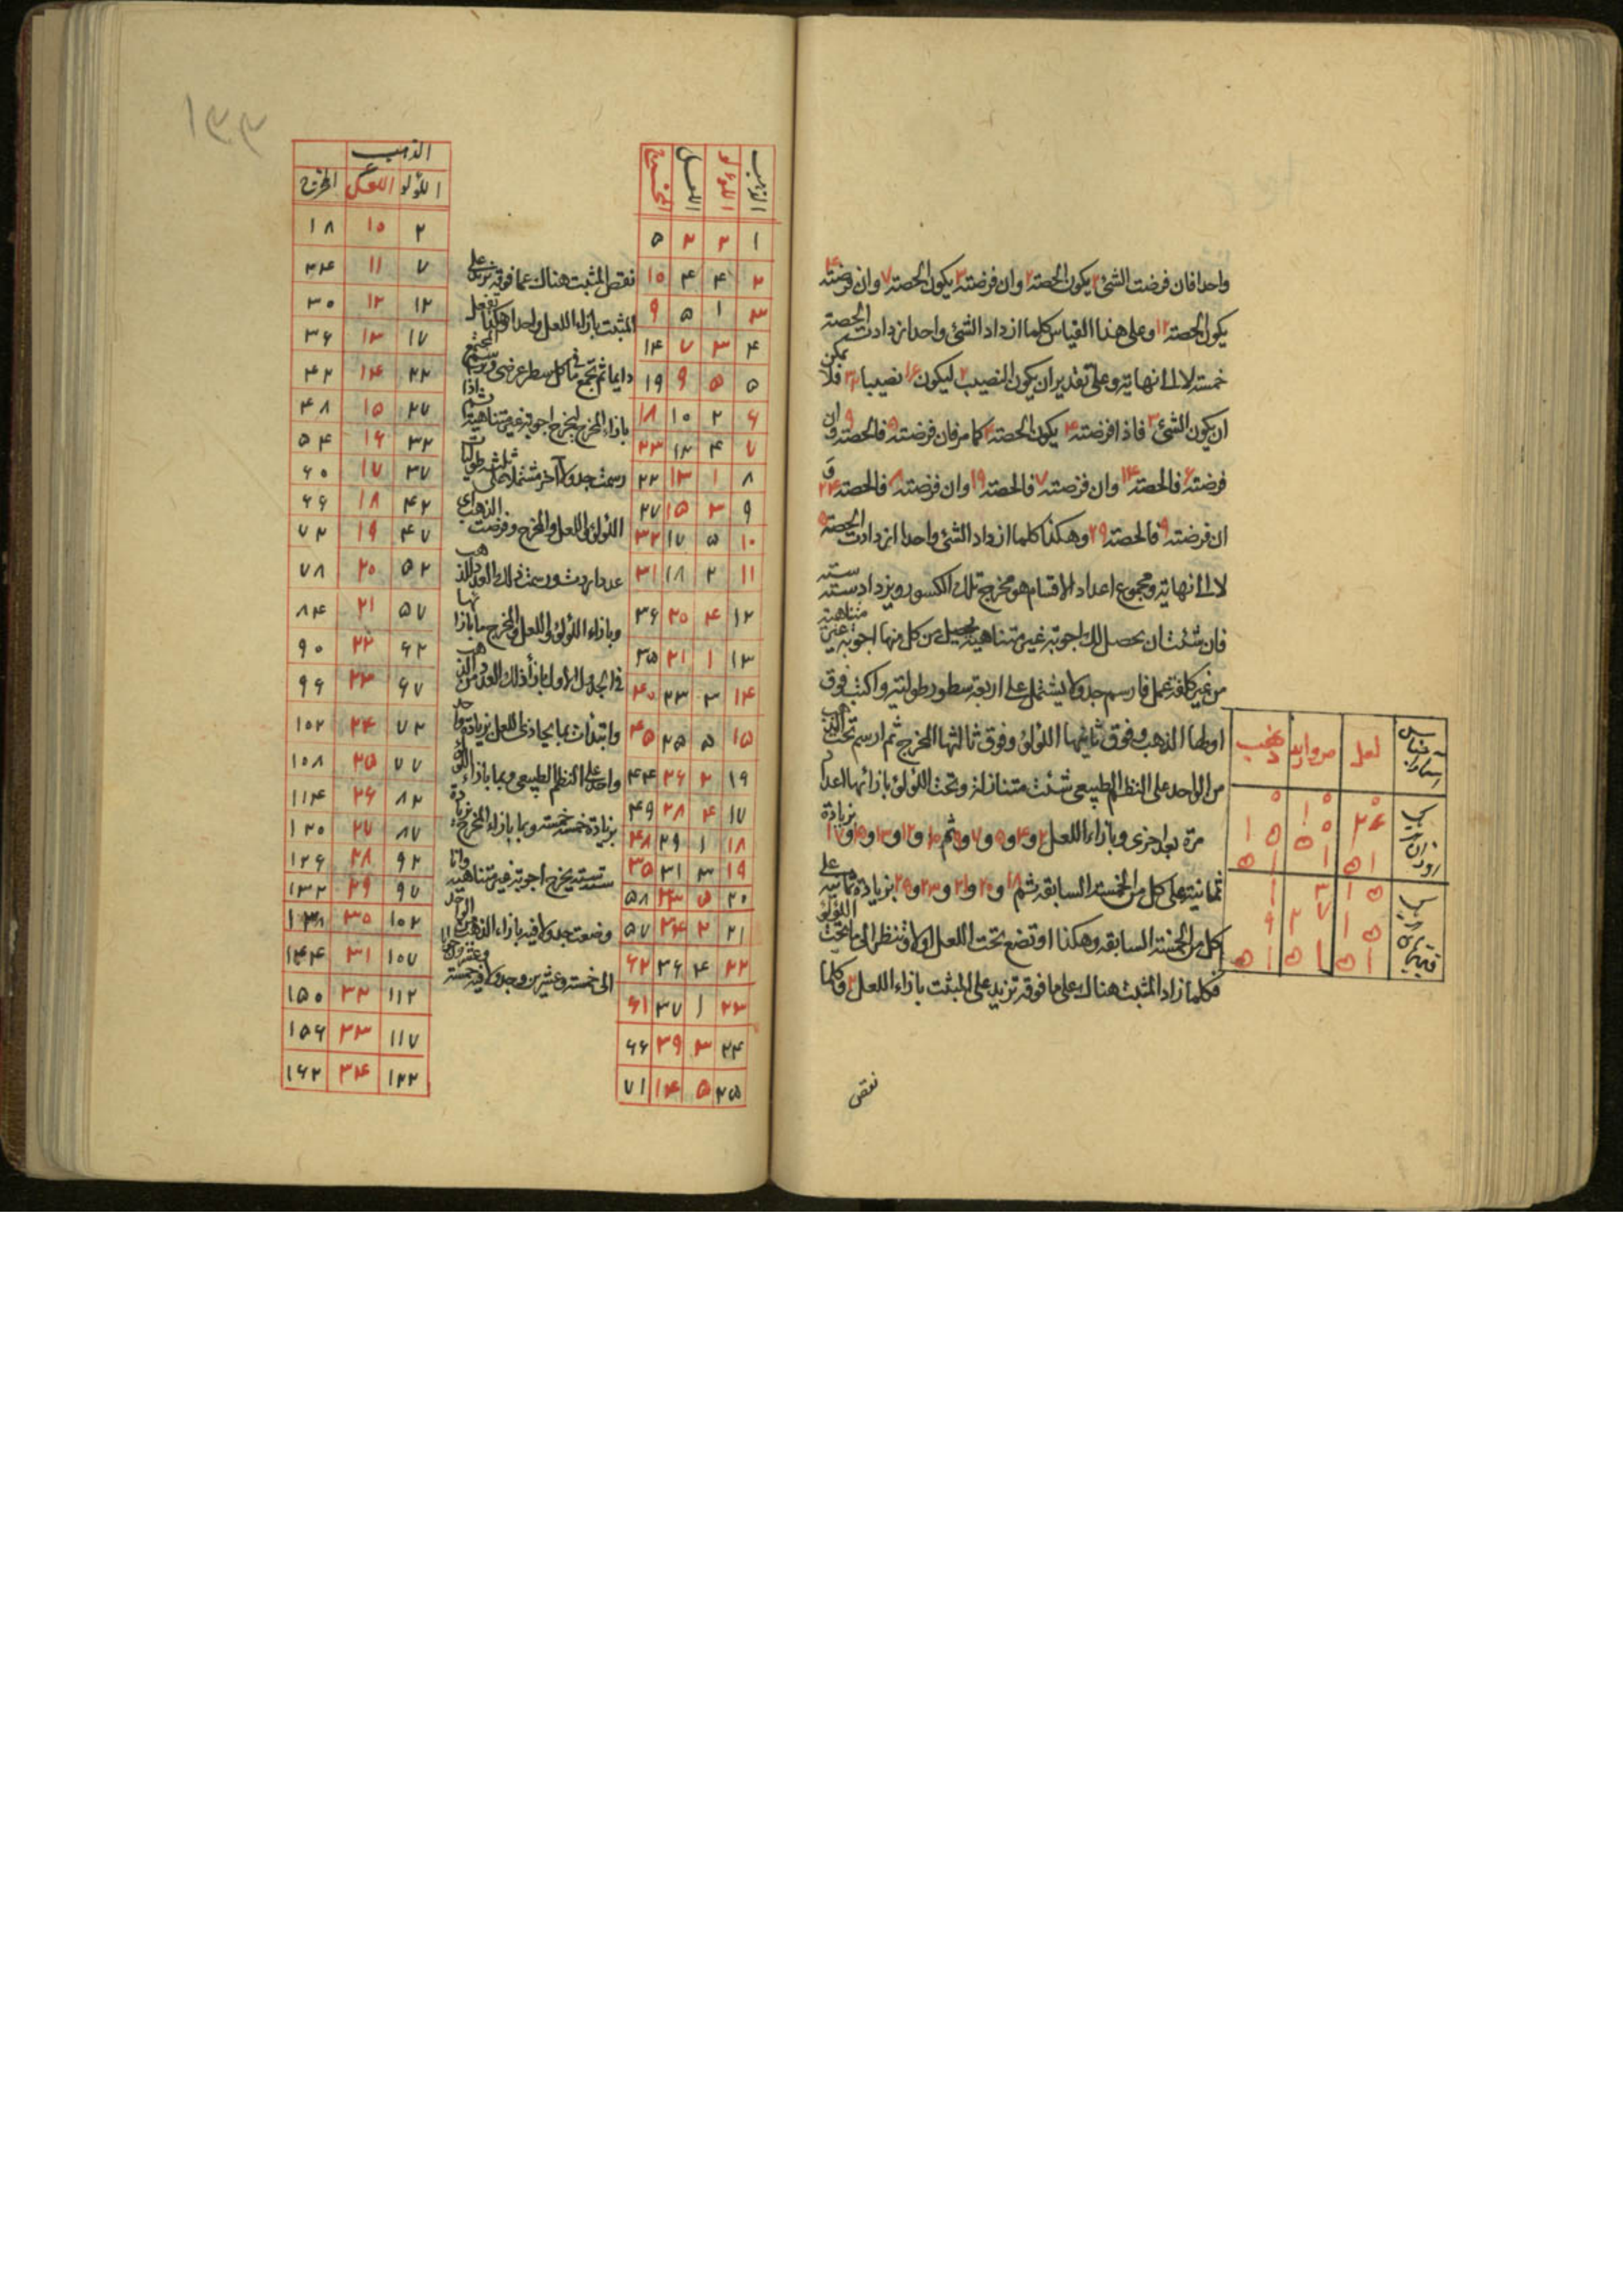 واحدا فان فرضت الشئ ٢ يكون الحصة ٢ وان فرضته ٣ يكون الحصة ٧ وان فرضته ۴
يكون الحصة ١٢ وعلى هذا القياس كلما ازداد الشئ واحدا ازدادت الحصة
خمسة لا الى نهاية وعلى تقدير ان يكون النصيب ٢ ليكون نصيبا فلا يمكن
ان يكون الشئ ٣ فاذا فرضته ۴ يكون الحصة ۴ كما مر فان فرضته ۵ فالحصة ٩ وان
فرضته ۶ فالحصة ١۴ وان فرضته ٧ فالحصة ١٩ وان فرضته ٨ فالحصة ٢۴ و
ان فرضته ٩ فالحصة ٢٩ وهكذا كلما ازداد الشئ واحدا ازدادت الحصة ۵
لا الى نهاية ومجموع اعداد الاقسام هو مخرج تلك الكسور ويزداد ستة ستة
فان شئت ان يحصل لك اجوبة غير متناهية من كل منها اجوبة غير متناهية
من غير كلفة عمل فارسم جدولا يشتمل على اربعة سطور طولية واكتب فوق
اولها الذهب وفوق ثانيها اللؤلؤ وفوق ثالثها المخرج ثم ارسم تحت الذهب
من الواحد على النظم الطبيعى شئت متنازلة وتحت اللؤلؤ بازائها اعداد
مرة بعد اخرى وبازاء اللعل ٢ و ۴ و ۵ و ٧ و ٩ ثم ١٠ و ١٢ و ١٣ و ١۵ و ١٧ بزيادة
ثمانية على كل من الخمسة السابقة ثم ١٨ و ٢٠ و ٢١ و ٢٣ و ٢۵ بزيادة ثمانية على
كل من الخمسة السابقة وهكذا او تضع تحت اللعل اولا ٢ وتنظر الى ما تحت اللؤلؤ
فكلما زاد المثبت هناك على ما فوقه تزيد على المثبت بازاء اللعل ٢ وكلما
نقص
لعل مرواريد ذهب
الذهب اللؤلؤ اللعل المخرج
١ ٢ ٢ ۵
٢ ۴ ۴ ١٠
٣ ١ ۵ ٩
۴ ٣ ٧ ١۴
۵ ۵ ٩ ١٩
۶ ٢ ١٠ ١٨
٧ ۴ ١٢ ٢٣
٨ ١ ١٣ ٢٢
٩ ٣ ١۵ ٢٧
١٠ ۵ ١٧ ٣٢
١١ ٢ ١٨ ٣١
١٢ ۴ ٢٠ ٣۶
١٣ ١ ٢١ ٣۵
١۴ ٣ ٢٣ ۴٠
١۵ ۵ ٢۵ ۴۵
١۶ ٢ ٢۶ ۴۴
١٧ ۴ ٢٨ ۴٩
١٨ ١ ٢٩ ۴٨
١٩ ٣ ٣١ ٣۵
٢٠ ۵ ٣٣ ۵٨
٢١ ٢ ٣۴ ۵٧
٢٢ ۴ ٣۶ ۶٢
٢٣ ١ ٣٧ ۶١
٢۴ ٣ ٣٩ ۶۶
٢۵ ۵ ١۴ ٧١
نقص المثبت هناك عما فوقه تزيد على
المثبت بازاء اللعل واحدا وهكذا تفعل
دايما ثم تجمع ما فى كل سطر عرضى وترسم المجتمع
بازاء المخرج ليخرج اجوبة غير متناهية ثم اذا
رسمت جدولا آخر مشتملا على ثلثة طوليات
اللؤلؤ واللعل والمخرج وفرضت الذهب اى
عدد اردت ورسمت ذلك العدد للذهب
وبازاء اللؤلؤ واللعل والمخرج ما بازائها
فى الجدول الاول بازاء ذلك العدد من الذهب
وابتدأت بما يحاذى اللعل بزيادة واحد
واحد على النظم الطبيعى وبما بازاء اللؤلؤ
بزيادة خمسة خمسة وبما بازاء المخرج بزيادة
ستة ستة يخرج اجوبة غير متناهية وانا
وضعت جدولا فيه بازاء الذهب من الواحد
الى خمسة وعشرين وجدولا فيه خمسة وعشرون
الذهب
اللؤلؤ اللعل المخرج
٢ ١٠ ١٨
٧ ١١ ٢۴
١٢ ١٢ ٣٠
١٧ ١٣ ٣۶
٢٢ ١۴ ۴٢
٢٧ ١۵ ۴٨
٣٢ ١۶ ۵۴
٣٧ ١٧ ۶٠
۴٢ ١٨ ۶۶
۴٧ ١٩ ٧٢
۵٢ ٢٠ ٧٨
۵٧ ٢١ ٨۴
۶٢ ٢٢ ٩٠
۶٧ ٢٣ ٩۶
٧٢ ٢۴ ١٠٢
٧٧ ٢۵ ١٠٨
٨٢ ٢۶ ١١۴
٨٧ ٢٧ ١٢٠
٩٢ ٢٨ ١٢۶
٩٧ ٢٩ ١٣٢
١٠٢ ٣٠ ١٣٨
١٠٧ ٣١ ١۴۴
١١٢ ٣٢ ١۵٠
١١٧ ٣٣ ١۵۶
١٢٢ ٣۴ ١۶٢